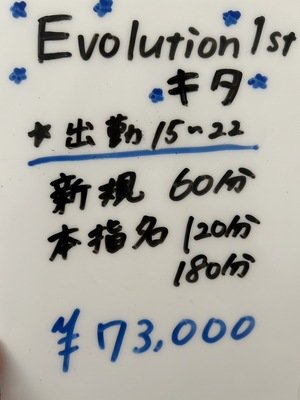 Evolution 1st
キタ
*出勤 15~22
新規 60分
本指名 120分
180分
¥73,000